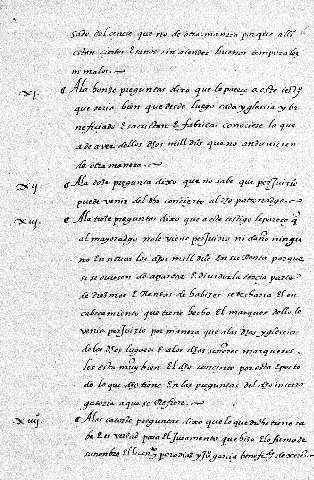 sado del conçie que no de otra manera porque alli
estan ciertos e sanos sin atender buenos temporales
ni malos
xi. A la honze preguntas dixo que le pareçe a este testigo
que seria bien que desde luego cada yglesia y be
neficiado e sacristan e fabricas conosciese lo que
a de aver dellos dichos mill dªs que no anduviesen
de otra manera.
xii A la doze pregunta dixo que no sabe que perjuizio
puede venir del dho concierto al dho patronadgo
xiii A la treze preguntas dixo que a este testigo le pareçe q
al mayoradgo no le viene perjuizio ni daño ningu
no en situar los dhos mill dªs en su Renta porque
si se ouiesen de apartar e dividir la terçia parte
de diezmos e Rentas de habizes se desharia el en
cabeçamiento que tiene hecho el marques dello le
vernia perjuizio por manera que a las dhas yglesias
de los dhos lugares e a los dhos señores marqueses
les esta muy bien el dho concierto por este Respeto
de lo que dho tiene en las preguntas del dho interro
gatorio a que se Refiere.
xiiij A las catorze preguntas dixo que lo que dicho tiene sa
be e es verdad para el juramento que hizo e lo firmo de
su nombre el bachiller